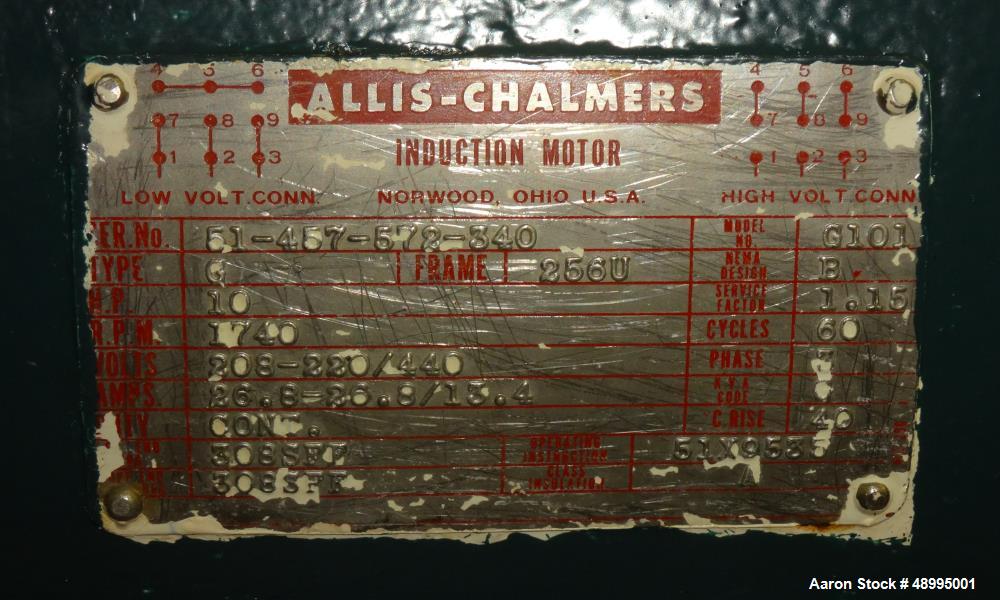 4 5 6 ALLIS-CHALMERS 4 5 6
7 8 9 7 8 9
1 2 3 INDUCTION MOTOR 1 2 3
LOW VOLT.CONN. NORWOOD, OHIO U.S.A. HIGH VOLT.CONN
SER.No. 51-457-572-340 MODEL NO. G101
TYPE G FRAME 256U NEMA DESIGN B
H.P. 10 SERVICE FACTOR 1.15
R.P.M. 1740 CYCLES 60
VOLTS 208-220/440 PHASE 3
AMPS 26.8-26.8/13.4 K.V.A. CODE
CONT. C RISE 40
308SFF OPERATING INSTRUCTION 51X953
308SFF CLASS INSULATION A
Aaron Stock # 48995001